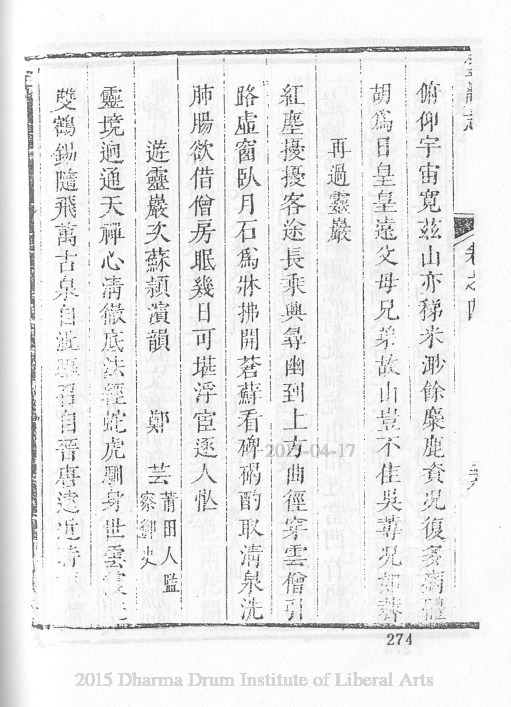 俯仰宇宙寬茲山亦稊米渺餘麋鹿資況復多
胡為日皇皇遠父母兄弟故山豈不佳吳蓴況如薺
再過靈巖
紅塵擾擾客途長乘興尋幽到上方曲徑穿雲僧引
路虛窗臥月石為牀拂開蒼蘚看碑碣酌取清泉洗
肺腸欲借僧房眠幾日可堪浮宦逐人忙
遊靈巖次蘇潁濱韻 鄭芸 莆田人監察御史
靈境迥通天禪心清徹底法經蛇虎馴身世雲
雙鶴錫隨飛萬古泉自
卷之四
274
2015-04-17
2015 Dharma Drum Institute of Liberal Arts